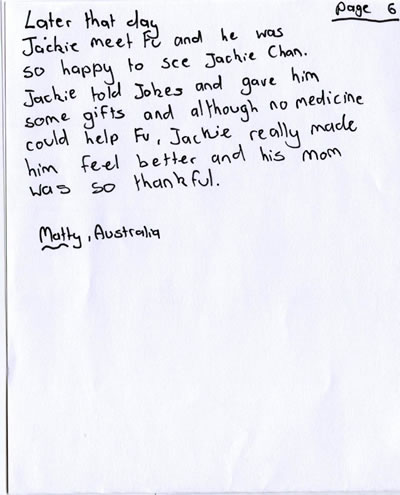 Page 6
Later that day
Jackie meet Fu and he was
so happy to see Jackie Chan.
Jackie told Jokes and gave him
some gifts and although no medicine
could help Fu, Jackie really made
him feel better and his mom
was so thankful.
Matty, Australia